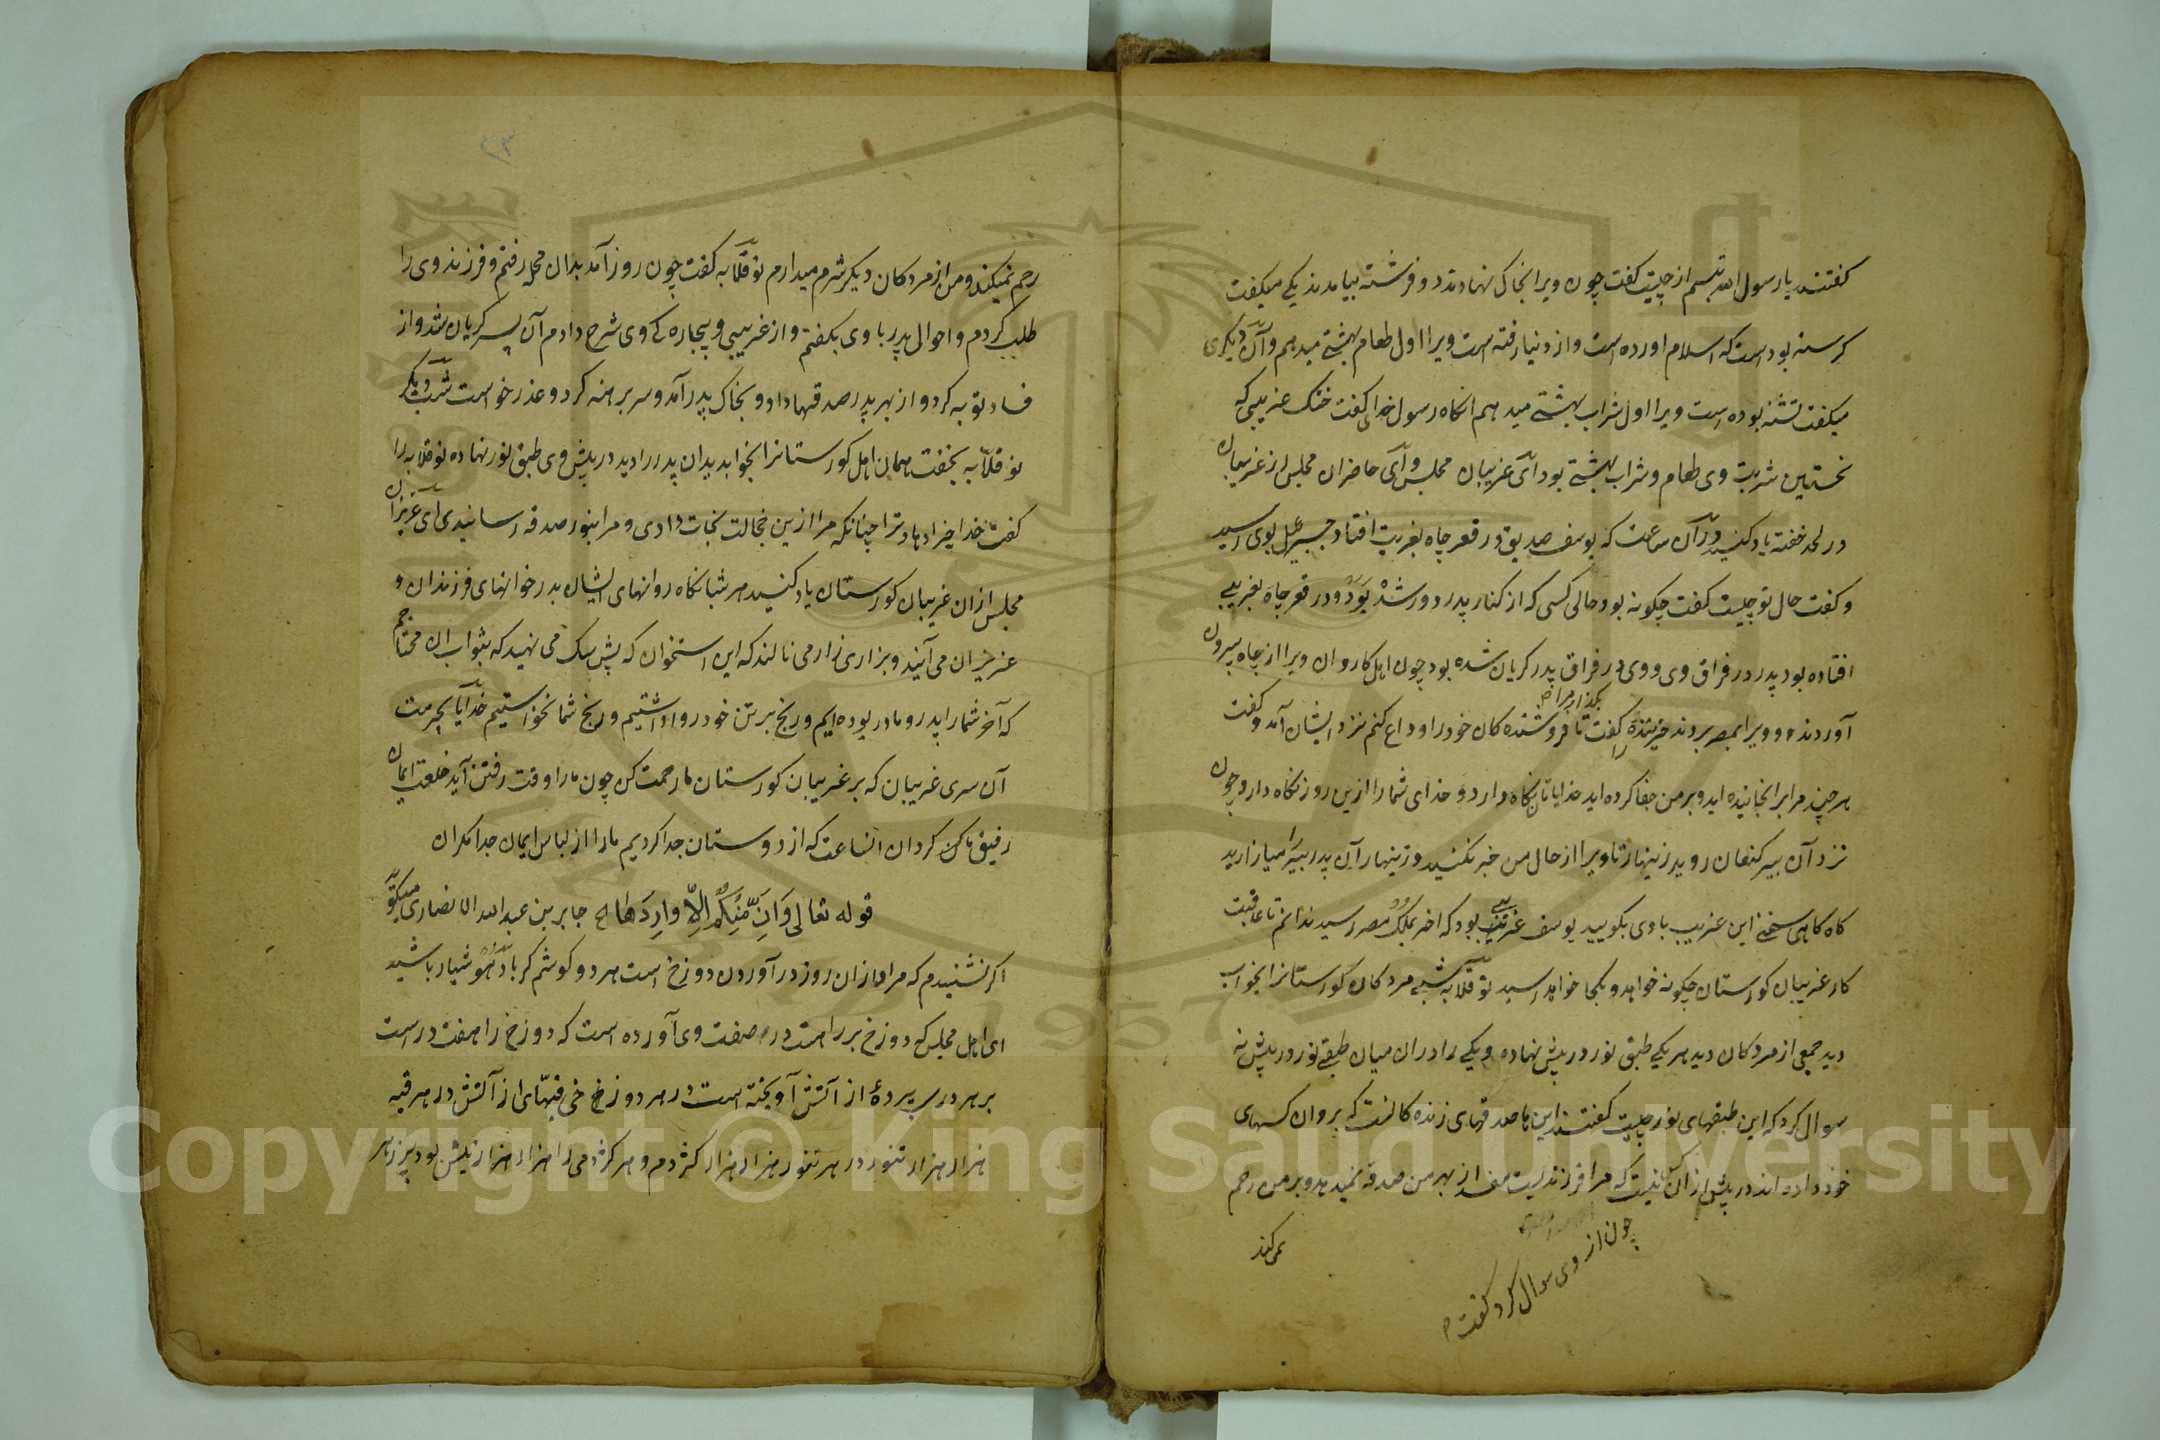 گفتند یا رسول الله تبسم از چیست گفت چون ویرا بخاک نهادند دو فرشته بیامدند یکی میگفت
گرسنه بوده است که اسلام آورده است و از دنیا رفته است ویرا اول طعام بهشتی میدهم و آن دیگری
میگفت تشنه بوده است ویرا اول شراب بهشتی میدهم آنگاه رسول خدای گفت خنک غریبی که
نخستین شربت وی طعام و شراب بهشتی بود ای غریبان مجلس و ای حاضران مجلس از غریبان
در لحد خفته یاد کنید در آن ساعت که یوسف صدیق در قعر چاه بغربت افتاد جبرئیل بوی رسید
و گفت حال تو چیست گفت چگونه بود حالی کسی که از کنار پدر دور شده بود و در قعر چاه بغریبی
افتاده بود پدر در فراق وی و وی در فراق پدر گریان شده بود چون اهل کاروان ویرا از چاه بیرون
آوردند و ویرا بمصر بردند خریننده را گفت تا فروشنده کان خود را وداع کنم نزد ایشان آمد و گفت
هر چند مرا برنجانیده اید و بر من جفا کرده اید خدایتان نگاه دارد و خدای شما را ازین روز نگاه دارد چون
نزد آن پیر کنعان روید زینهار تا ویرا از حال من خبر نکنید و زینهار آن پدر پیر را میازارید
گاه گاهی سخن این غریب با وی بگویید یوسف غریب بود که آخر بملک مصر رسید ندانم تا عاقبت
کار غریبان گورستان چگونه خواهد و بکجا خواهد رسید بوقلابه شبی مردگان گورستانرا بخواب
دید جمعی از مردگان دید هر یکی طبق نور در پیش نهاده و یکی را در ان میان طبقی نور در پیش نه
سوال کرد که این طبقهای نور چیست گفتند این ها صدقهای زنده کانست که بروان کسهای
خود داده اند در پیش از آن نیست که مرا فرزندیست مفسد از بهر من صدقه نمیدهد و بر من رحم
نمی کند
چون از وی سوال کرد گفت
رحم نمیکند و من از مردکان دیگر شرم میدارم بوقلابه گفت چون روز آمد بدان محله رفتم و فرزند وی را
طلب کردم و احوال پدر با وی بگفتم و از غریبی و بیچاره کی وی شرح دادم آن پسر گریان شد و از
فساد توبه کرد و از بهر پدر صدقها داد و بخاک پدر آمد و سر برهنه کرد و عذر خواست شب دیگر
بوقلابه بخفت همان اهل گورستانرا بخواب دید آن پدر را دید در پیش وی طبق نور نهاده بوقلابه را
گفت خدا خیر دهاد ترا چنانکه مرا ازین خجالت نجات دادی و مرا بنور صدقه رسانیدی ای عزیزان
مجلس از ان غریبان گورستان یاد کنید هر شبانگاه روانهای ایشان بدر خوانهای فرزندان و
عزیزان می آیند و بزاری زار می نالند که این استخوان که پیش سگ می نهید که بثواب ان محتاجیم
که آخر شما را پدر و مادر بوده ایم و رنج بر تن خود روا داشتیم و رنج شما نخواستیم خدایا بحرمت
آن سری غریبان که بر غریبان گورستان ما رحمت کن چون ما را وقت رفتن آید خلعت ایمان
رفیق ما کن گردان انساعت که از دوستان جدا کردیم ما را از لباس ایمان جدا مگردان
قوله تعالی وَاِنْ مِنْكُمْ اِلّا وارِدُها جابر بن عبد الله الانصاری میگوید
اگر نشنیدم که مراد ازان روز در آوردن دوزخ است هر دو گوشم کر باد هوشیار باشید
ای اهل مجلس که دوزخ بر راهست در صفت وی آورده است که دوزخ را هفت درست
بر هر دری پردهٔ از آتش آویخته است در هر دوزخی قبهای از آتش در هر قبه
هزار هزار تنور در هر تنور هزار هزار کژدم و هر کژدمی را هزار هزار نیش بود پر زهر
Copyright © King Saud University
1957